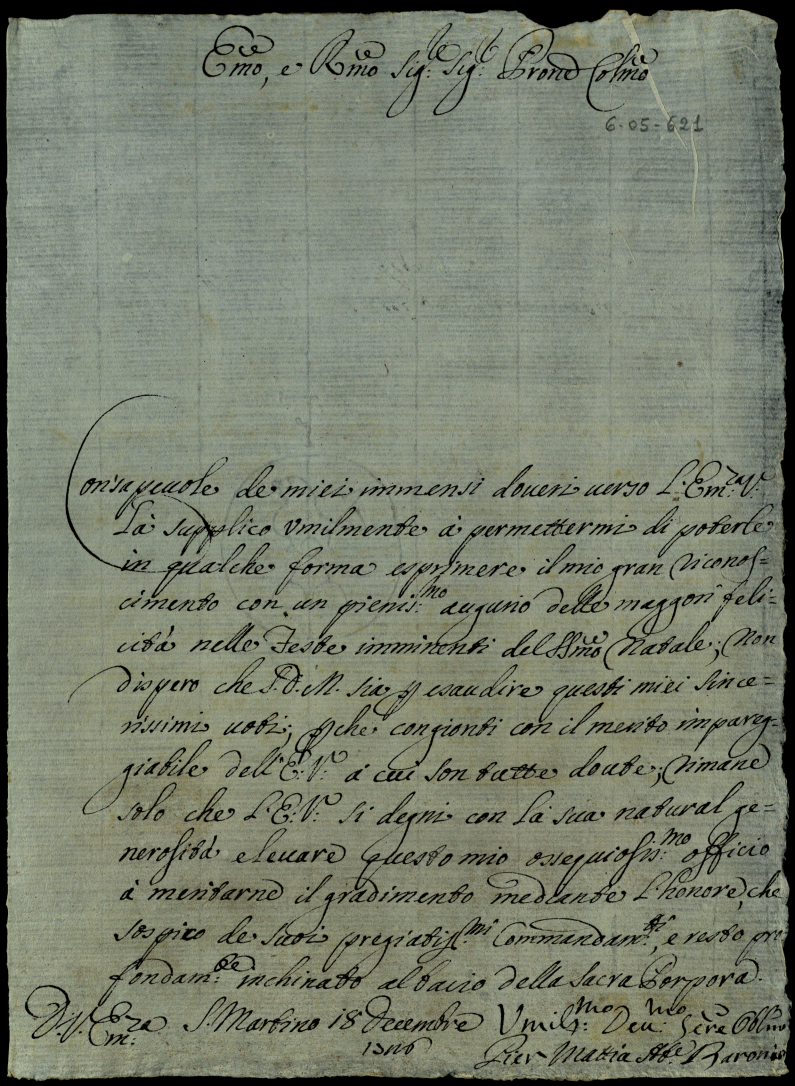 Emo, e Rmo Sig.r Sig.r Prone Colmo
6-05-621
Consapeuole de miei immensi doueri uerso L'Em.za V.
La supplico vmilmente à permettermi di poterle
in qualche forma esprimere il mio gran riconos=
cimento con un pienis.mo augurio delle maggori feli=
cità nelle Feste imminenti del SSmo Natale; Non
dispero che S.D.M. sia p esaudire questi miei since=
rissimi uoti; pche congionti con il merito impareg=
giabile dell'E: V. à cui son tutte doute; rimane
solo che L'E: V. si degni con la sua natural ge=
nerosità eleuare questo mio ossequiosis.mo officio
à meritarne il gradimento mediante L'honore, che
sospiro de suoi pregiatiss.mi Commandam.ti, e resto pro
fondam.te inchinato al bacio della Sacra Porpora.
D. V. Em.za S. Martino 18 Decembre Vmilis.mo Deu.mo Serre Obblmo
Pier Mattia Ab.e Baronio